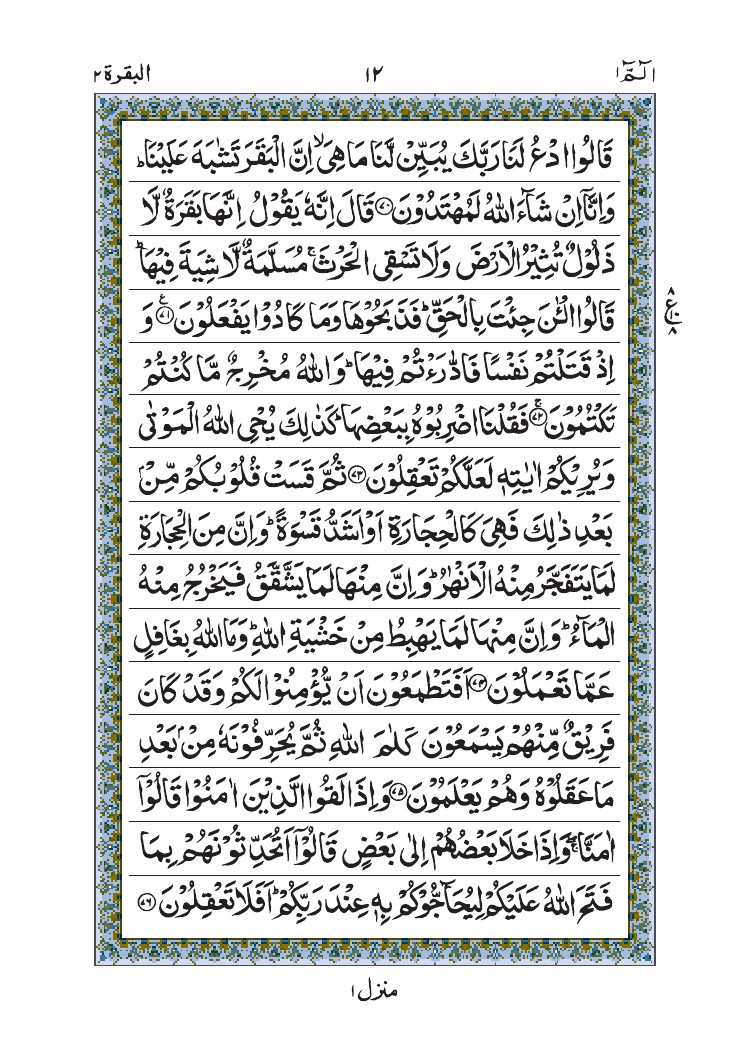 الٓمّٓ ۱
۱۲
البقرة ۲
قَالُوا ادْعُ لَنَا رَبَّكَ يُبَيِّنْ لَّنَا مَا هِىَ ۙ اِنَّ الْبَقَرَ تَشٰبَهَ عَلَيْنَا ؕ
وَاِنَّاۤ اِنْ شَآءَ اللّٰهُ لَمُهْتَدُوْنَ ﴿۷۰﴾ قَالَ اِنَّهٗ يَقُوْلُ اِنَّهَا بَقَرَةٌ لَّا
ذَلُوْلٌ تُثِيْرُ الْاَرْضَ وَلَا تَسْقِى الْحَرْثَ ۚ مُسَلَّمَةٌ لَّا شِيَةَ فِيْهَا ؕ
قَالُوا الْـٰٔنَ جِئْتَ بِالْحَقِّ ؕ فَذَبَحُوْهَا وَمَا كَادُوْا يَفْعَلُوْنَ ﴿۷۱﴾ وَ
۸ ع ۱۰ ۸
اِذْ قَتَلْتُمْ نَفْسًا فَادّٰرَءْتُمْ فِيْهَا ؕ وَاللّٰهُ مُخْرِجٌ مَّا كُنْتُمْ
تَكْتُمُوْنَ ﴿۷۲﴾ ۚ فَقُلْنَا اضْرِبُوْهُ بِبَعْضِهَا ؕ كَذٰلِكَ يُحْىِ اللّٰهُ الْمَوْتٰى
وَيُرِيْكُمْ اٰيٰتِهٖ لَعَلَّكُمْ تَعْقِلُوْنَ ﴿۷۳﴾ ثُمَّ قَسَتْ قُلُوْبُكُمْ مِّنْۢ
بَعْدِ ذٰلِكَ فَهِىَ كَالْحِجَارَةِ اَوْ اَشَدُّ قَسْوَةً ؕ وَاِنَّ مِنَ الْحِجَارَةِ
لَمَا يَتَفَجَّرُ مِنْهُ الْاَنْهٰرُ ؕ وَاِنَّ مِنْهَا لَمَا يَشَّقَّقُ فَيَخْرُجُ مِنْهُ
الْمَآءُ ؕ وَاِنَّ مِنْهَا لَمَا يَهْبِطُ مِنْ خَشْيَةِ اللّٰهِ ؕ وَمَا اللّٰهُ بِغَافِلٍ
عَمَّا تَعْمَلُوْنَ ﴿۷۴﴾ اَفَتَطْمَعُوْنَ اَنْ يُّؤْمِنُوْا لَكُمْ وَقَدْ كَانَ
فَرِيْقٌ مِّنْهُمْ يَسْمَعُوْنَ كَلٰمَ اللّٰهِ ثُمَّ يُحَرِّفُوْنَهٗ مِنْۢ بَعْدِ
مَا عَقَلُوْهُ وَهُمْ يَعْلَمُوْنَ ﴿۷۵﴾ وَاِذَا لَقُوا الَّذِيْنَ اٰمَنُوْا قَالُوْۤا
اٰمَنَّا ۖۚ وَاِذَا خَلَا بَعْضُهُمْ اِلٰى بَعْضٍ قَالُوْۤا اَتُحَدِّثُوْنَهُمْ بِمَا
فَتَحَ اللّٰهُ عَلَيْكُمْ لِيُحَآجُّوْكُمْ بِهٖ عِنْدَ رَبِّكُمْ ؕ اَفَلَا تَعْقِلُوْنَ ﴿۷۶﴾
منزل ۱